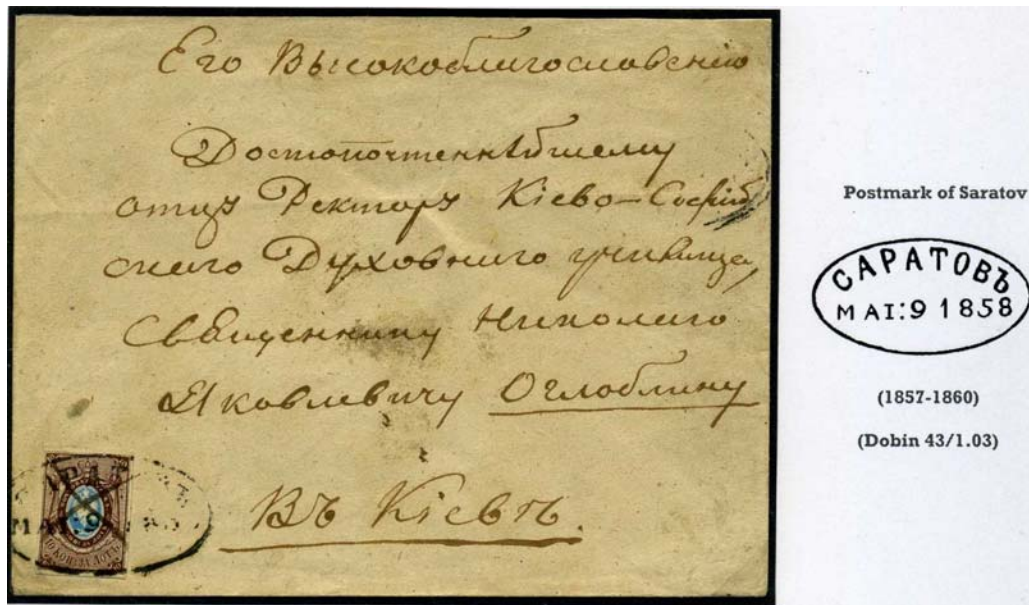 Его Высокоблигословенію
Достопочтеннѣйшему
отцу Ректору Кіево-Софій
скаго Духовнаго училища,
Священнику Николаю
Яковлевичу Оглоблину
Въ Кіевѣ.
МАІ.9
10 КОП.ЗА ЛОТЪ
Postmark of Saratov
САРАТОВЪ
МАІ:9 1858
(1857-1860)
(Dobin 43/1.03)